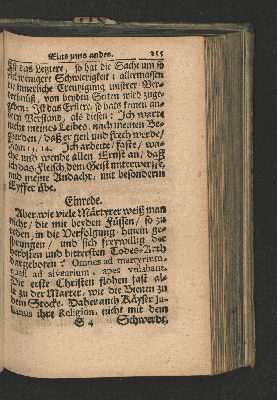 Eins ums ander. 255
Ist das Letztere, so hat die Sache um so
viel wenigere Schwierigkeit; allermassen
die innerliche Creutzigung unserer Ver-
derbnüß, von beyden Seiten wird zuge-
geben: Ist das Erstere, so hats keinen an-
dern Verstand, als diesen: Ich warte
nicht meines Leibes, nach meinen Be-
gierden/ daß er geil und frech werde/
Rom. 13, 14. Ich arbeite/ faste/ wa-
che und wende allen Ernst an, daß
ich das Fleisch dem Geist unterwerffe,
und meine Andacht, mit besonderm
Eyffer übe.
Einrede.
Aber wie viele Märtyrer weiß man
nicht, die mit beyden Füssen, so zu
reden, in die Verfolgung hinein ge-
sprungen/ und sich freywillig der
herbsten und bittersten Todes-Arth
dargeboten? Omnes ad martyrium,
quasi ad alvearium, apes volabant.
Die erste Christen flohen fast al-
le zu der Marter, wie die Bienen zu
dem Stocke. Daher auch Käyser Ju-
lianus ihre Religion, nicht mit dem
S 4 Schwerdt,